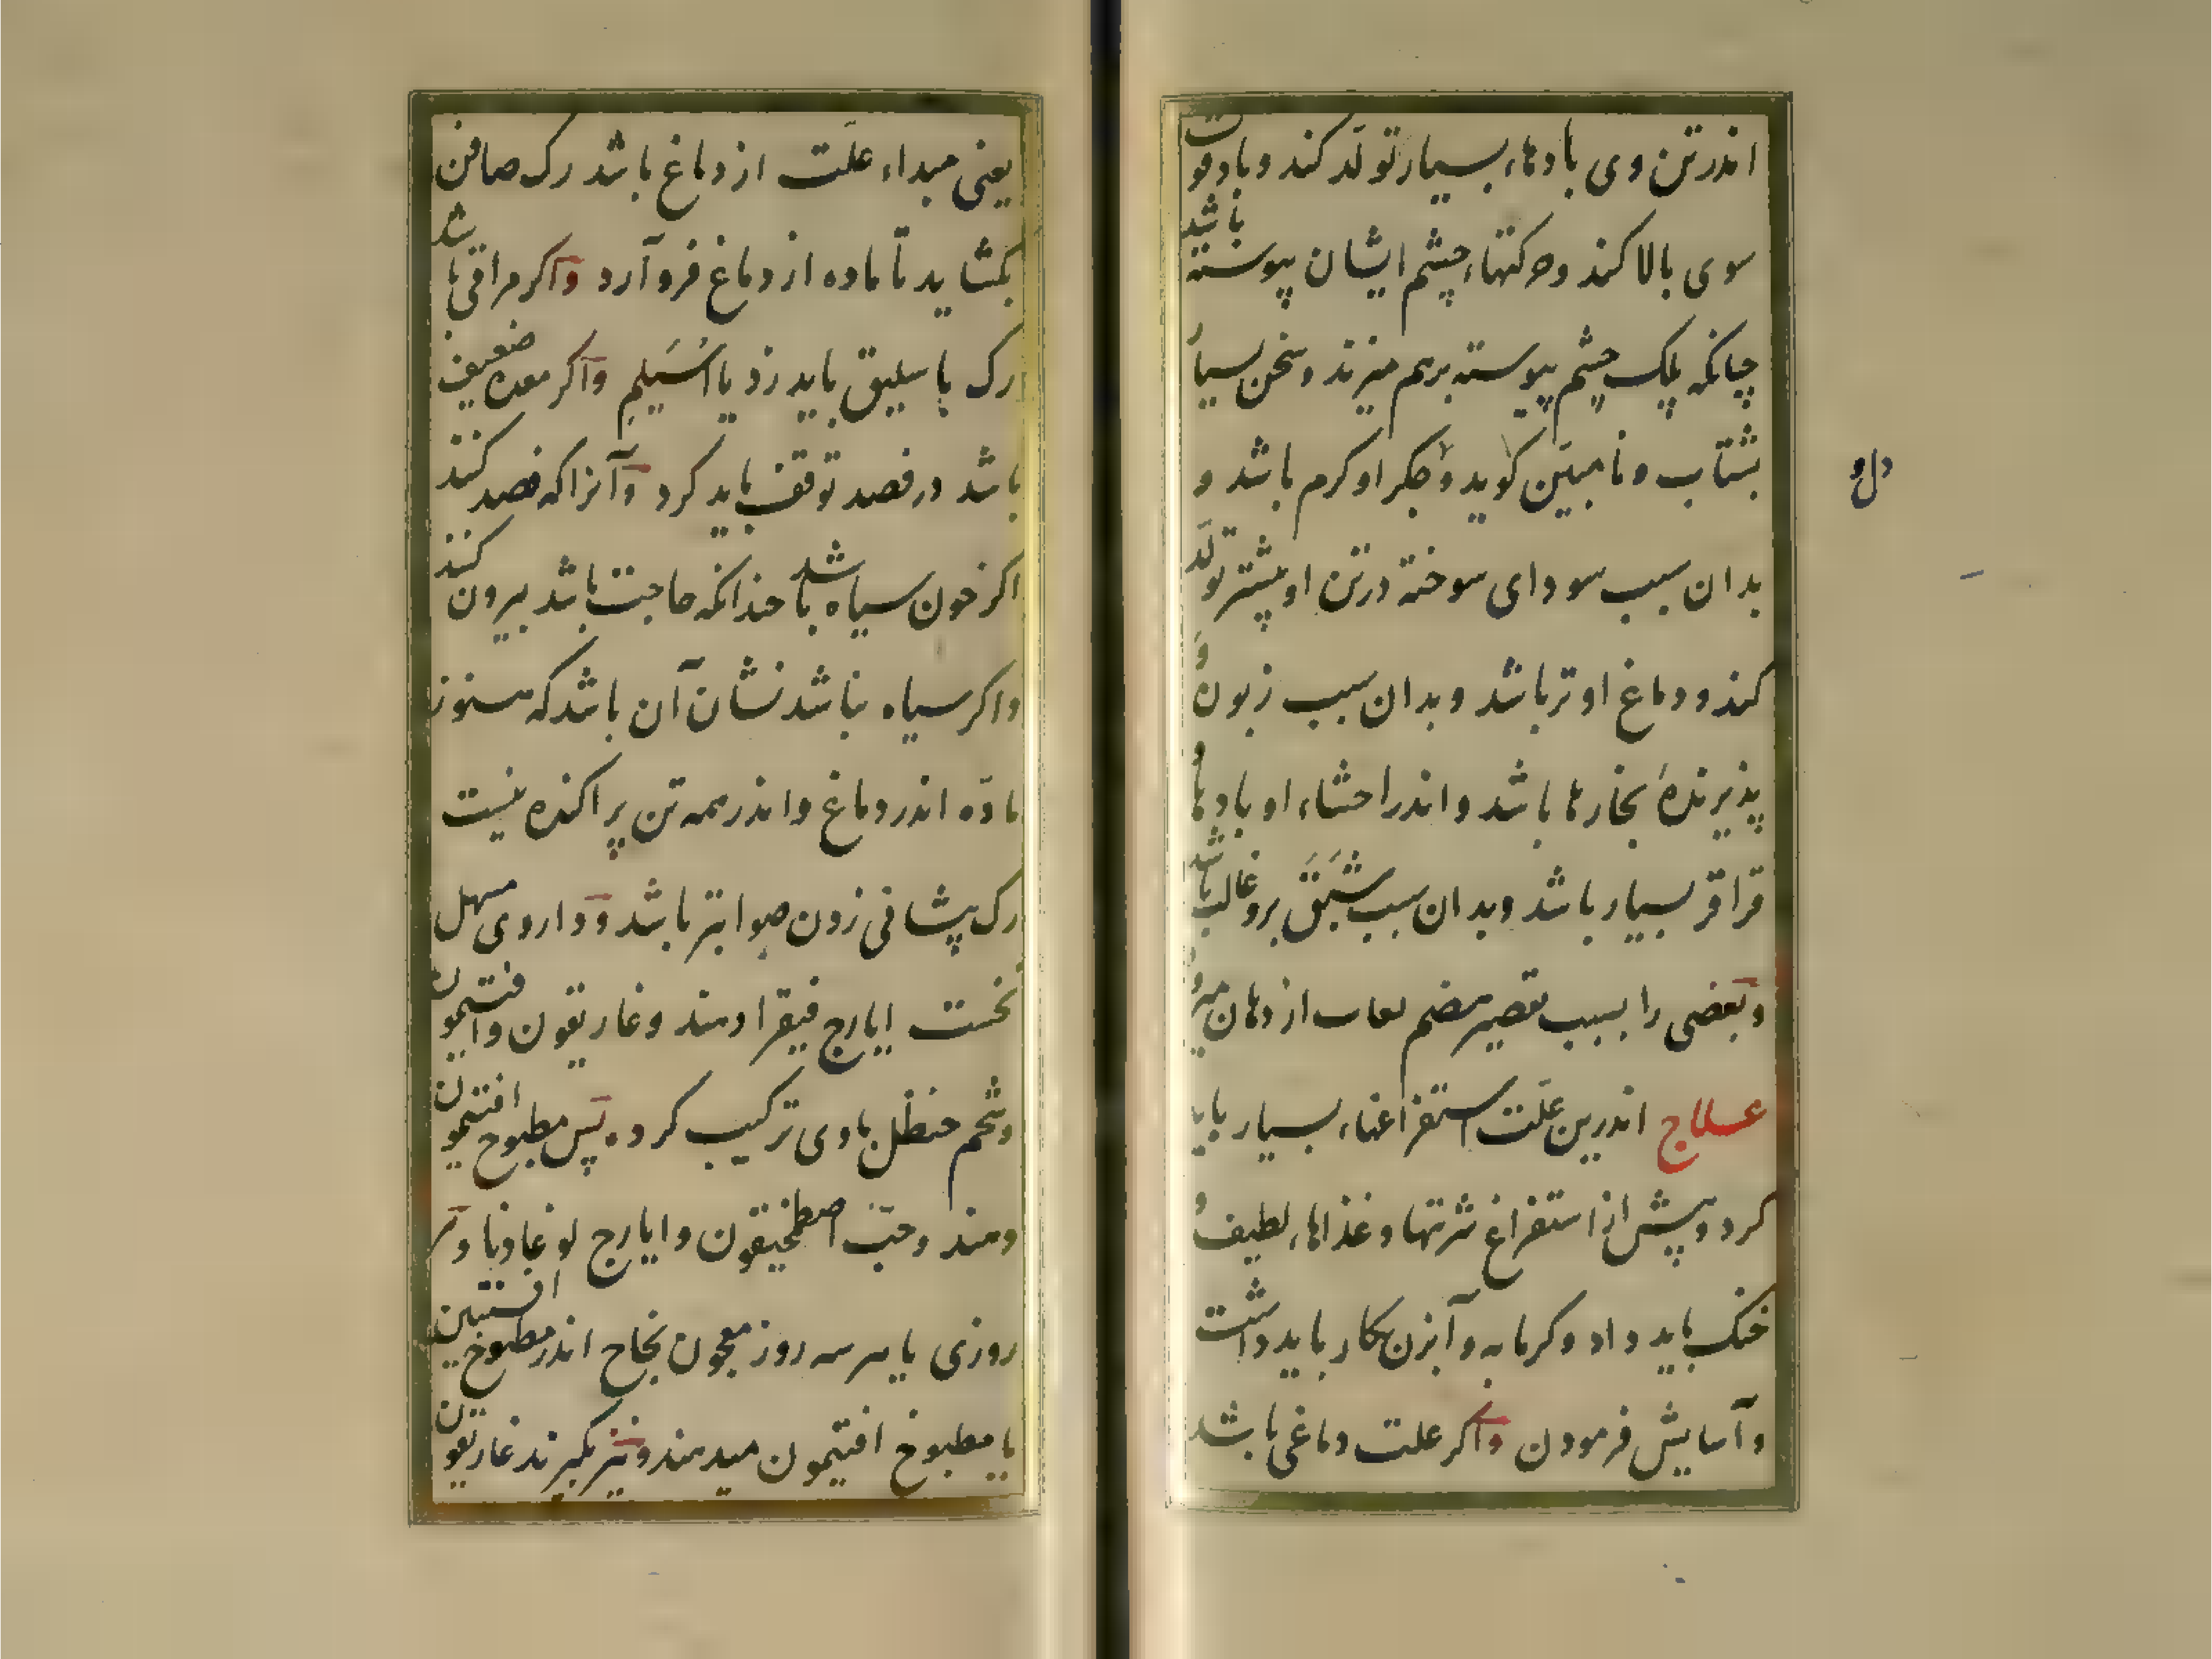 اندر تن وی بادهاء بسیار تولّد کند و باد قوت
سوی بالا کند و حرکتهاء چشم ایشان پیوسته باشد
چنانکه پلک چشم پیوسته برهم میزند و سخن بسیار
بشتاب و نامبیّن کوید و جکر او کرم باشد و
دل و
بدان سبب سودای سوخته در تن او بیشتر تولّد
کند و دماغ او تر باشد و بدان سبب زبون و
پذیرندهٔ بخارها باشد و اندر احشاء او بادها و
قراقر بسیار باشد و بدان سبب شَبَق برو غالب باشد
و بعضی را بسبب تقصیر هضم لعاب از دهان میرود
علاج اندرین علّت استفراغهاء بسیار باید
کرد و پیش از استفراغ شربتها و غذاهاء لطیف و
خنک باید داد و کرمابه و آبزن بکار باید داشت
و آسایش فرمودن و اکر علت دماغی باشد
یعنی مبداء علّت از دماغ باشد رک صافن
بکشاید تا ماده از دماغ فرو آرد و اکر مراقی باشد
رک باسلیق باید زد یا اُسَیلِم و اکر معده ضعیف
باشد در فصد توقف باید کرد و آنرا که فصد کنند
اکر خون سیاه باشد جندانکه حاجت باشد بیرون کنند
و اکر سیاه نباشد نشان آن باشد که هنوز
مادّه اندر دماغ و اندر همه تن پراکنده نیست
رک پیشانی زدن صوابتر باشد و داروی مسهل
نخست ایارج فیقرا دهند و غاریقون و افتیمون
و شحم حنظل با وی ترکیب کرده پس مطبوخ افتیمون
دهند و حبّ اصطمخیقون و ایارج لوغاذیا و هر
روزی یا هر سه روز معجون نجاح اندر مطبوخ افسنتین
یا مطبوخ افتیمون میدهند و نیز بکیرند غاریقون